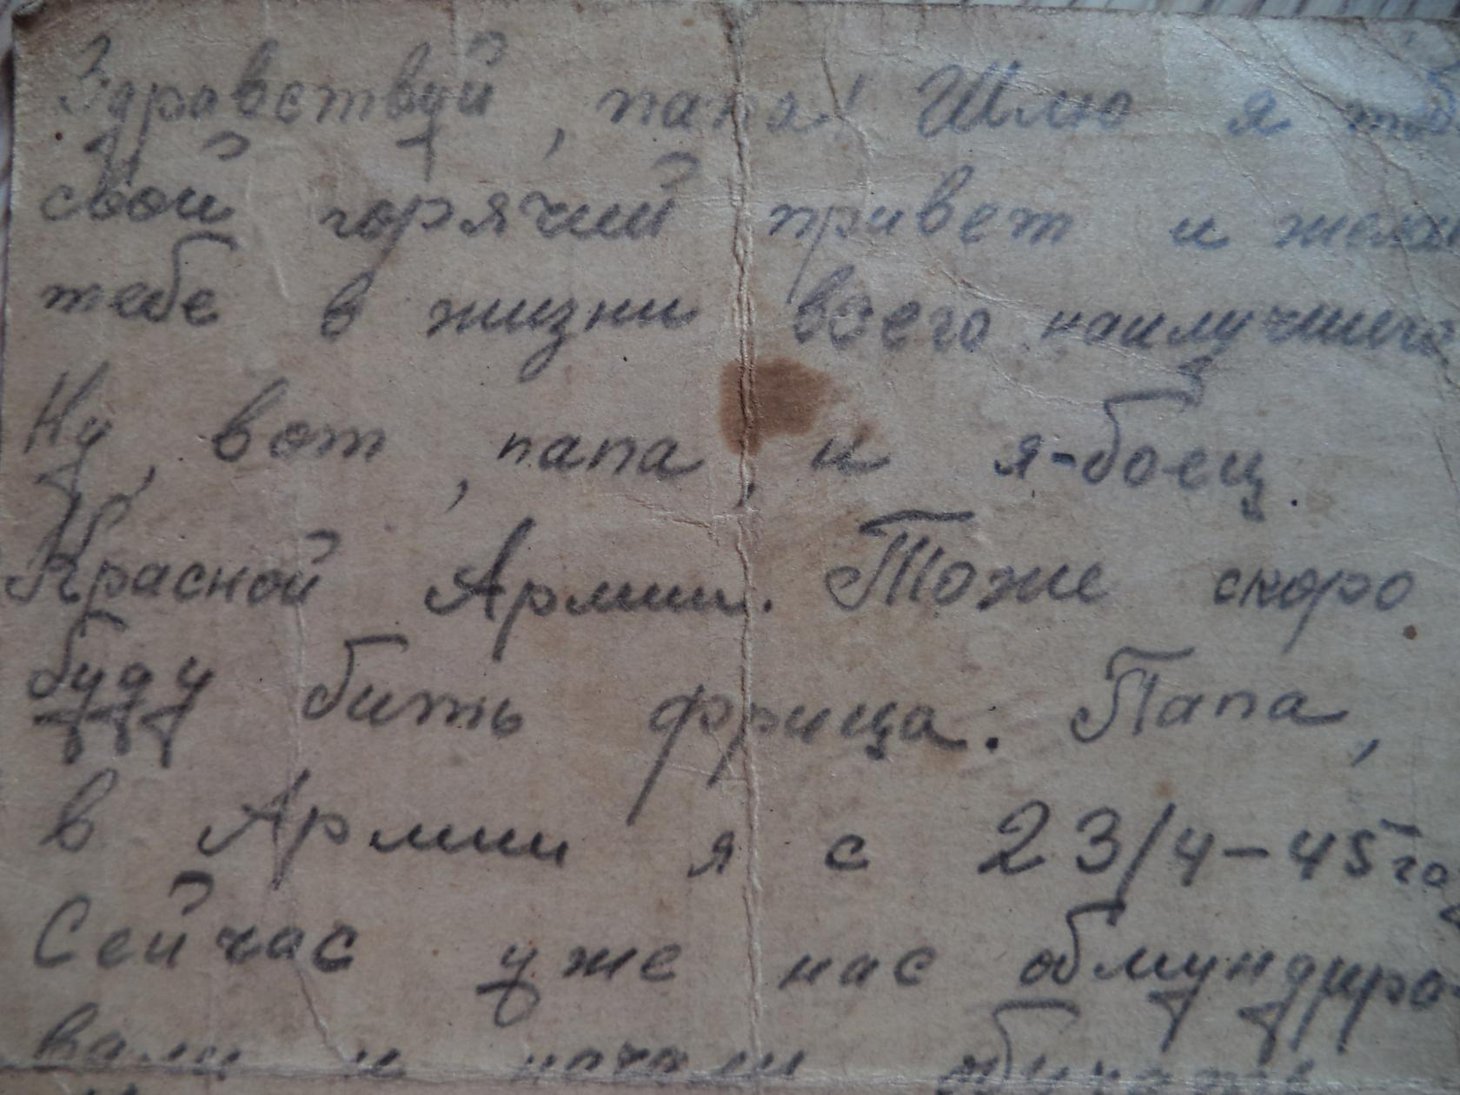 Здравствуй, папа! Шлю я теб
свой горячий привет и желаю
тебе в жизни всего наилучшего
Ну, вот, папа, и я-боец.
Красной Армии. Тоже скоро
буду бить фрица. Папа,
в Армии я с 23/4-45 го
Сейчас уже нас обмундиро-
вали и начали обучать